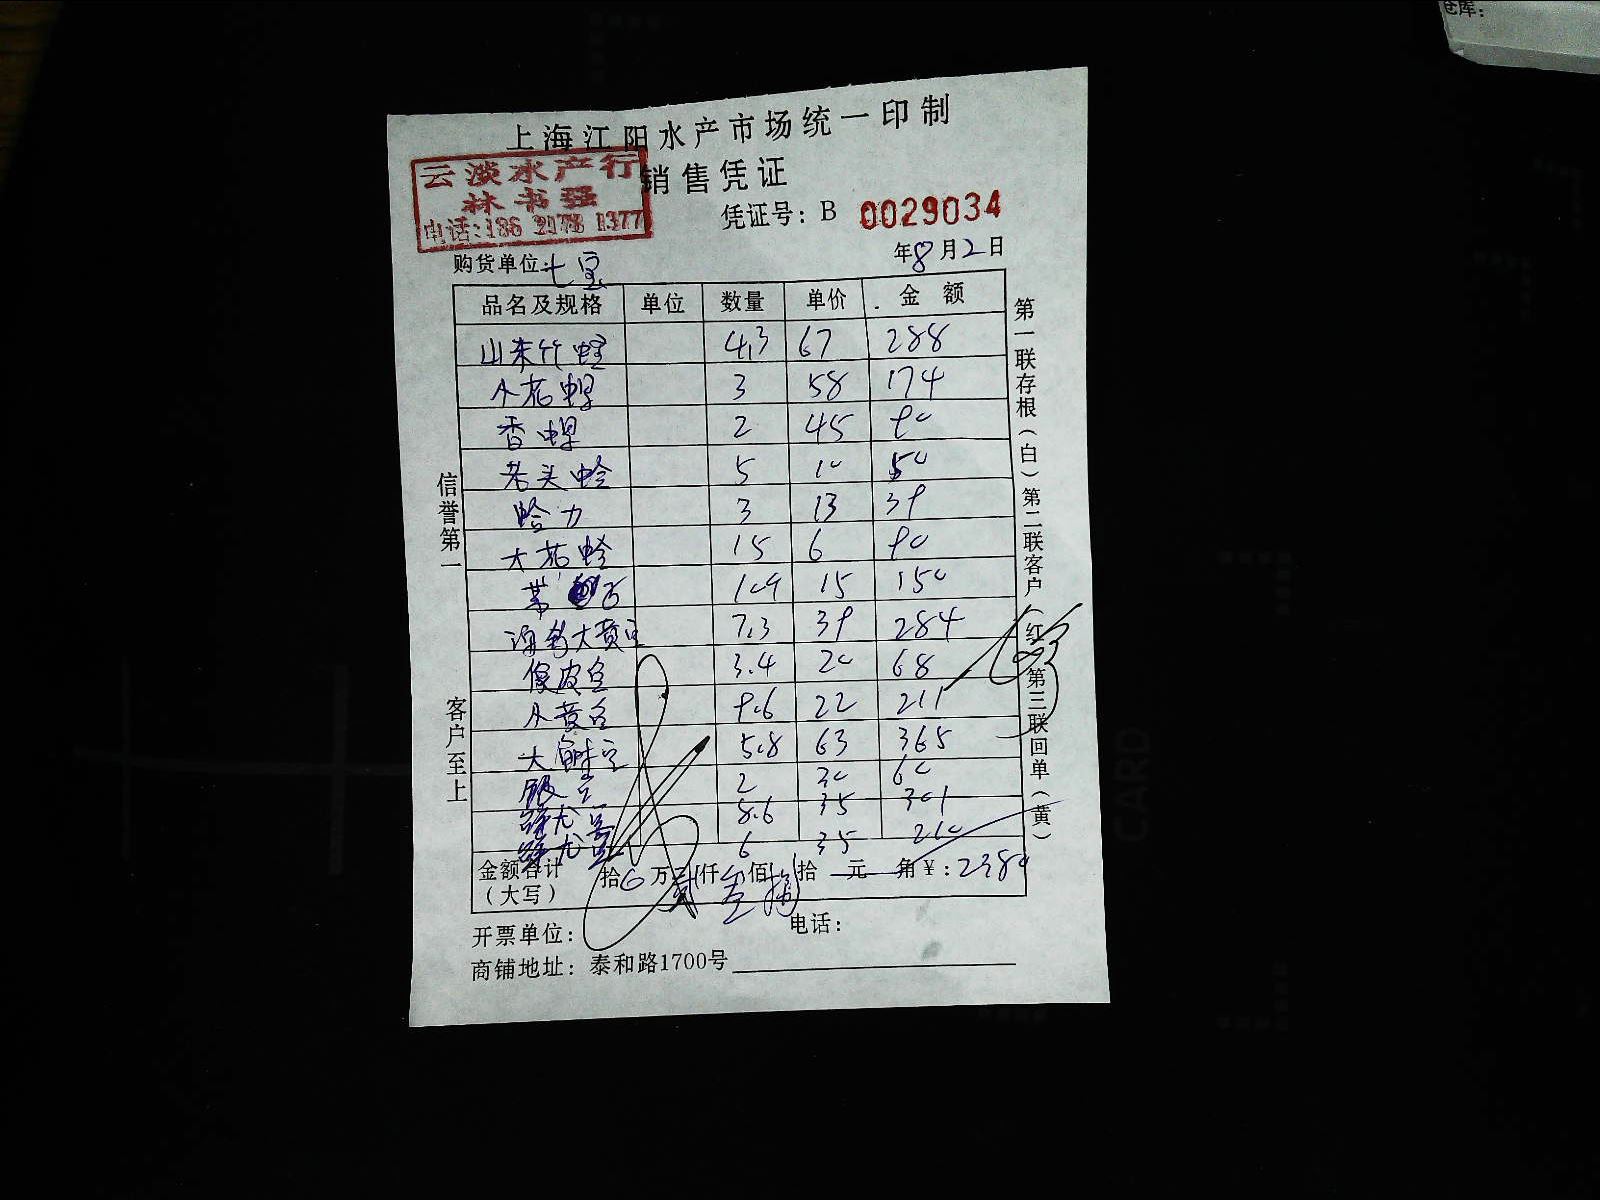 仓库:
上海江阳水产市场统一印制
云淡水产行
林书强
电话:186 2178 1377
销售凭证
凭证号: B 0029034
购货单位:七宝
年8月2日
品名及规格 单位 数量 单价 金额
山东竹蛏 4.3 67 288
小花螺 3 58 174
香螺 2 45 90
老头蛤 5 10 50
蛤力 3 13 39
大花蛤 15 6 90
15 150
大黄鱼 7.3 39 284
像皮鱼 3.4 20 68
小黄鱼 9.6 22 211
大 5.8 63 365
2 30 60
8.6 35 301
6 35 210
金额合计 拾 万 仟 佰 拾 元 角¥:
(大写)
开票单位: 电话:
商铺地址: 泰和路1700号
信誉第一 客户至上
第一联存根(白)第二联客户(红)第三联回单(黄)
CARD